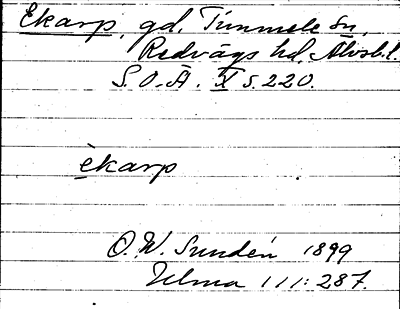 Ekarp, gd. Timmele sn,
Redvägs hd. Älvsb. l.
S.O.Ä. X s. 220.
èkarp
O.W. Sundén 1899
Ulma 111:287.